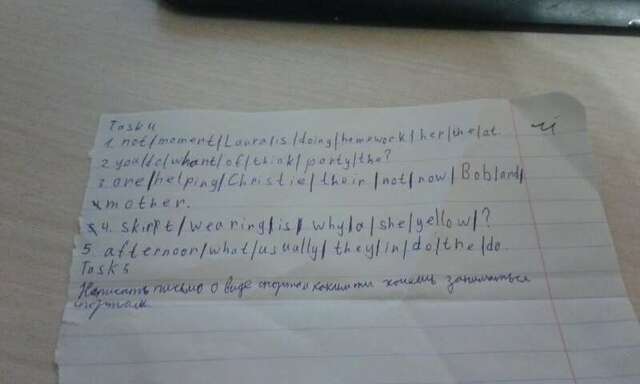 Task 4
1. not/moment/Laura/is/doing/homework/her/the/at.
2. you/do/whant/of/think/party/the?
3. are/helping/Christie/their/not/now/Bob/and/
mother.
4. skirt/wearing/is/why/a/she/yellow/?
5. afternoon/what/usually/they/in/do/the/do.
Task 5
Написать письмо о виде спорта каким ты хочешь заниматься
спортом